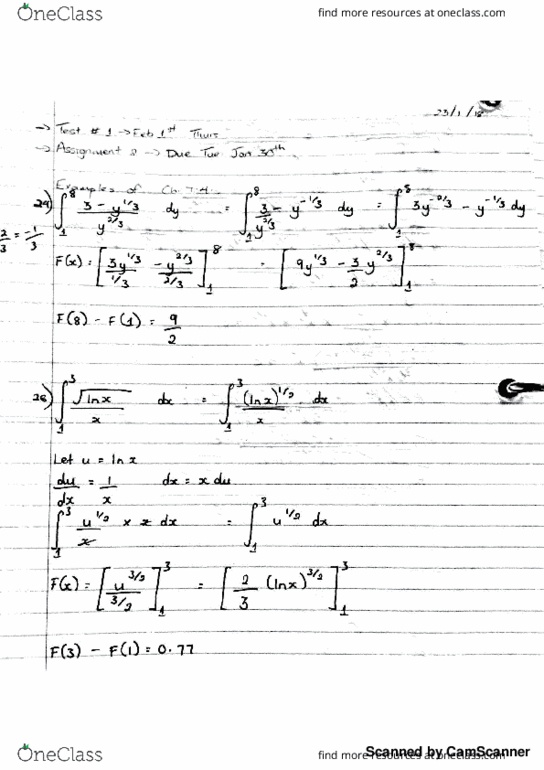 OneClass
find more resources at oneclass.com
23/1/18
→ Test # 1 → Feb 1st Thurs
→ Assignment 2 → Due Tue Jan 30th
Examples of Ch 7.4
24) ∫₁⁸ (3 - y^(1/3))/y^(2/3) dy = ∫₁⁸ 3/y^(2/3) - y^(-1/3) dy = ∫₁⁸ 3y^(-2/3) - y^(-1/3) dy
2/3 = -1/3
F(x) = [3y^(1/3)/(1/3) - y^(2/3)/(2/3)]₁⁸ = [9y^(1/3) - 3/2 y^(2/3)]₁⁸
F(8) - F(1) = 9/2
26) ∫₁³ √(ln x)/x dx = ∫₁³ (ln x)^(1/2)/x dx
Let u = ln x
du/dx = 1/x dx = x du
∫₁³ u^(1/2)/x × x dx = ∫₁³ u^(1/2) dx
F(x) = [u^(3/2)/(3/2)]₁³ = [2/3 (ln x)^(3/2)]₁³
F(3) - F(1) = 0.77
OneClass
find more resources at oneclass.com
Scanned by CamScanner